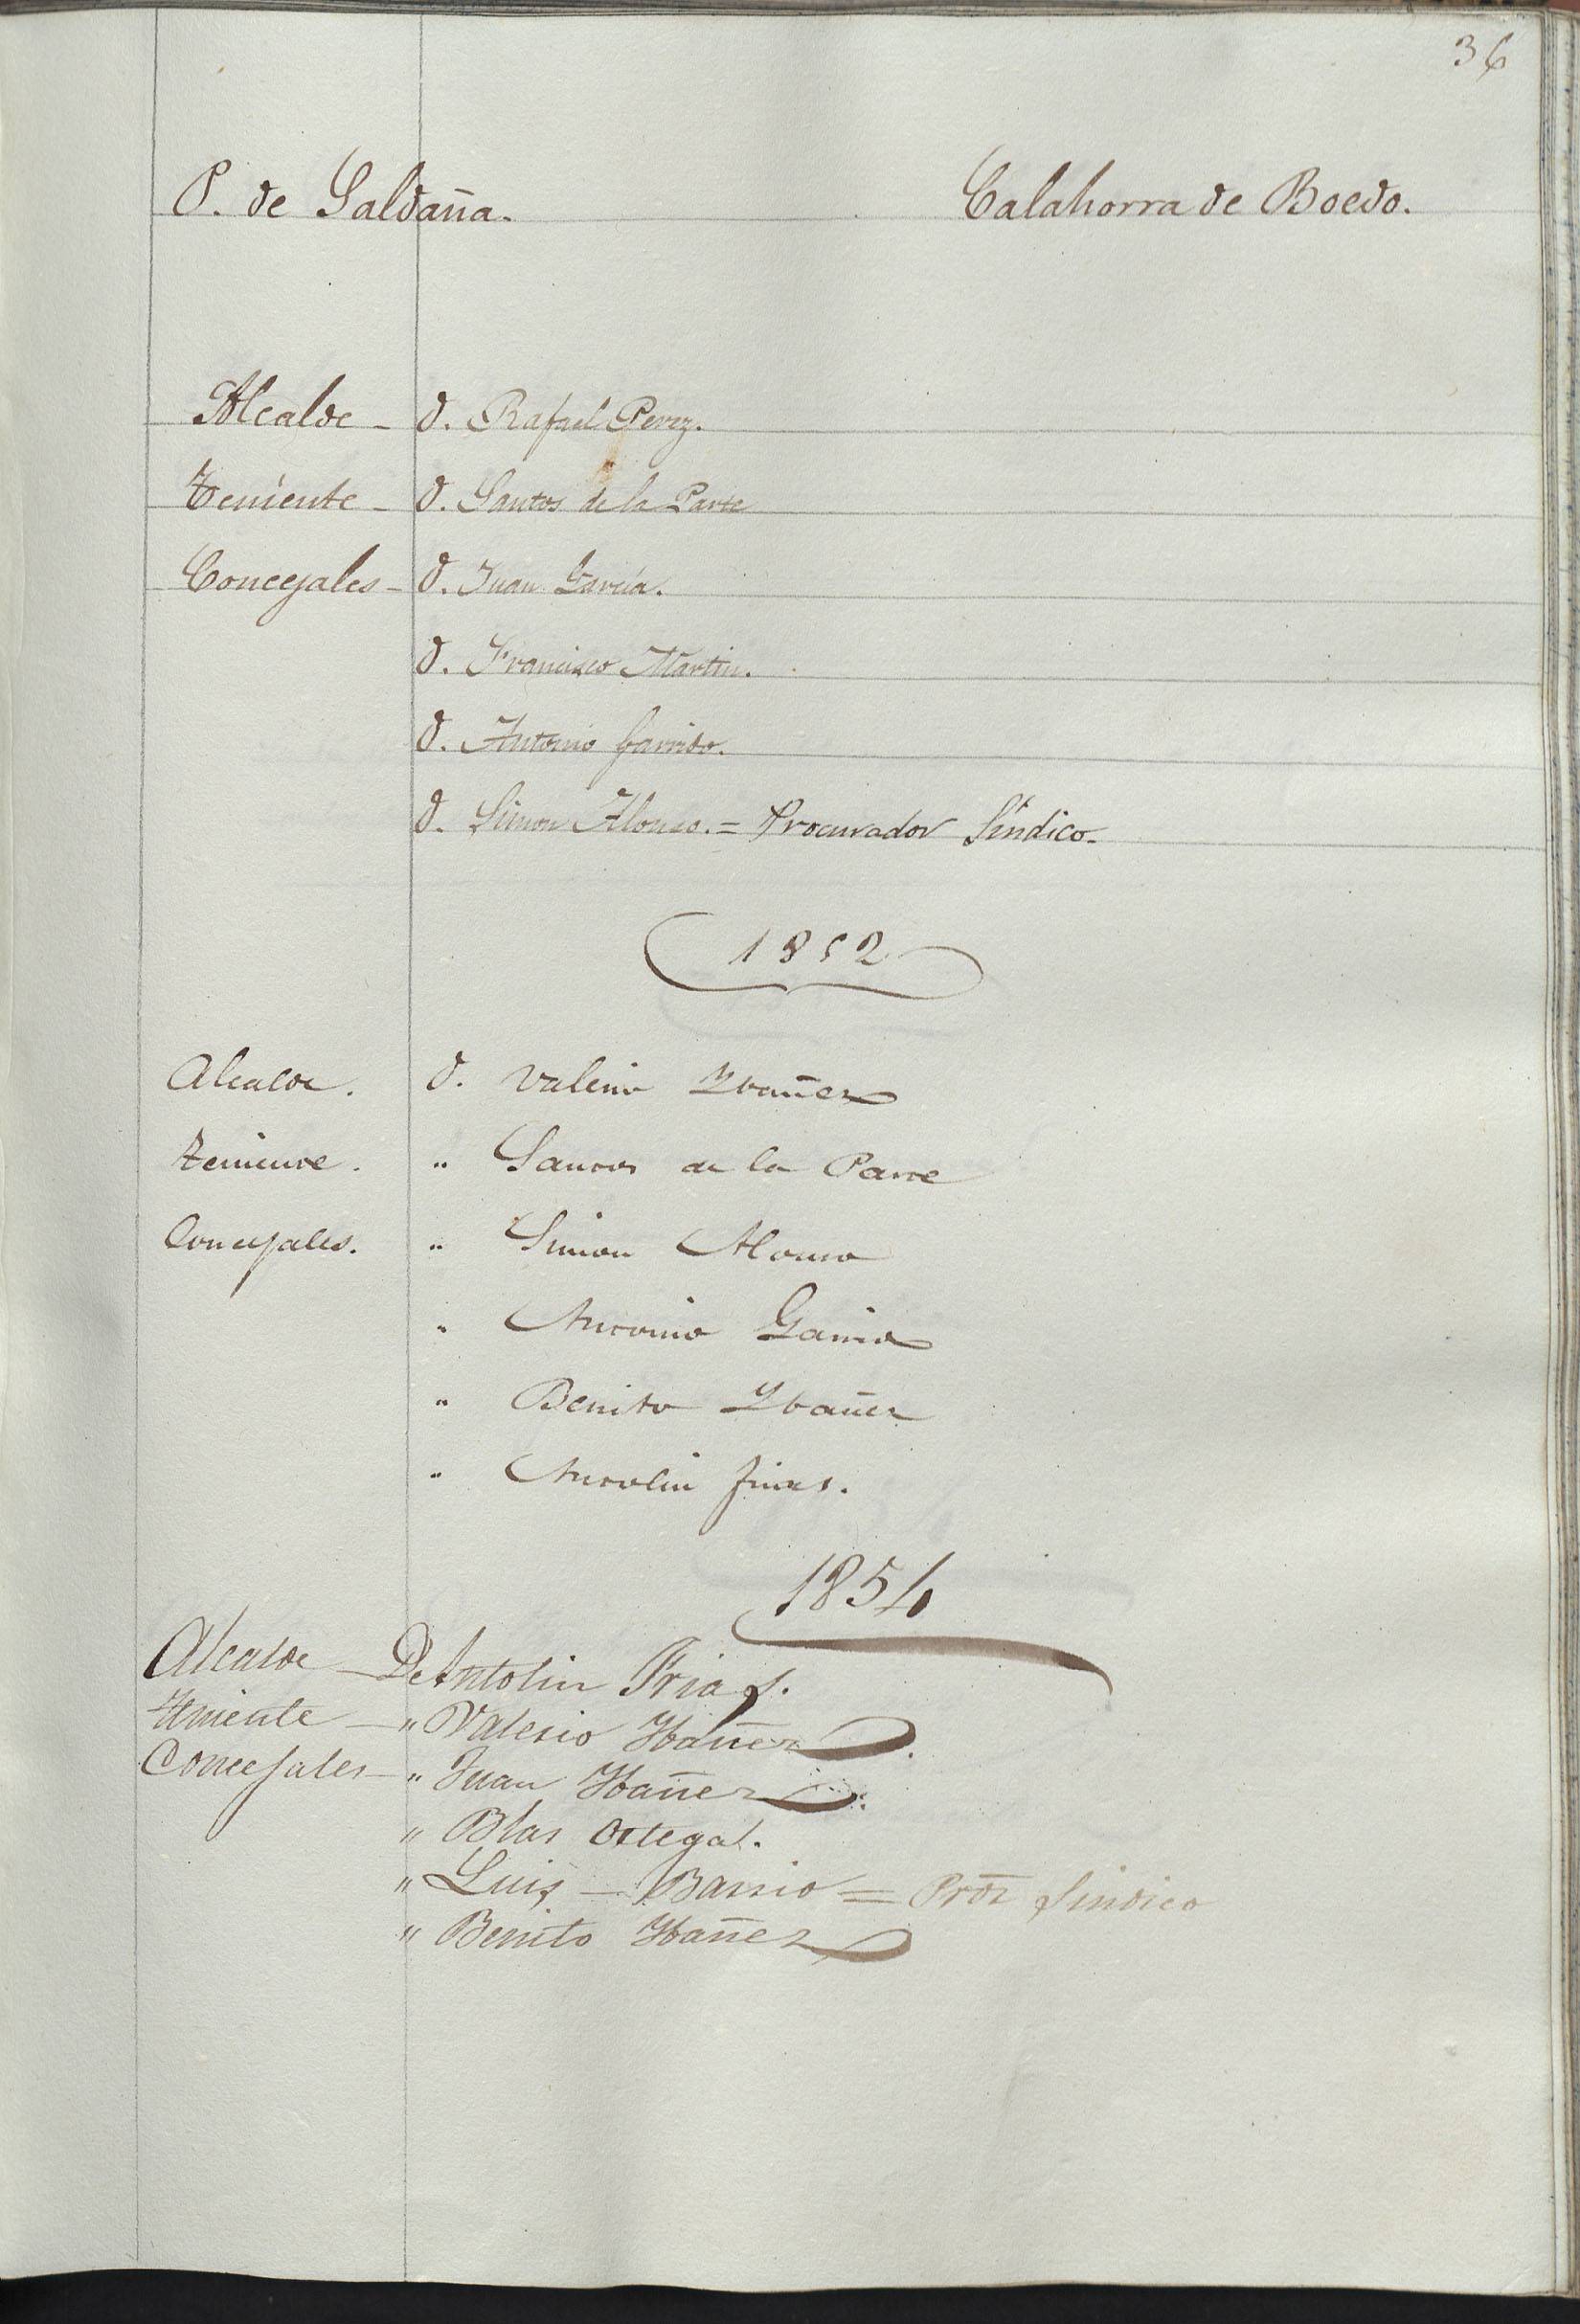 36
P. de Saldaña. Calahorra de Boedo.
Alcalde - D. Rafael Perez.
Teniente - D. Santos de la Parte
Concejales - D. Juan García.
D. Francisco Martin.
D. Antonio Garrido.
D. Simon Alonso. = Procurador Síndico.
1852
Alcalde. D. Valerio Ybañez
Teniente. " Santos de la Parte
Concejales. " Simon Alonso
" Antonio Garrido
" Benito Ybañez
" Antolin Frias.
1854
Alcalde - Dn Antolin Frias.
Teniente - " Valerio Ybañez.
Concejales - " Juan Ybañez.
" Blas Ortega.
" Luis - Barrio = Prodr Sindico
" Benito Ybañez